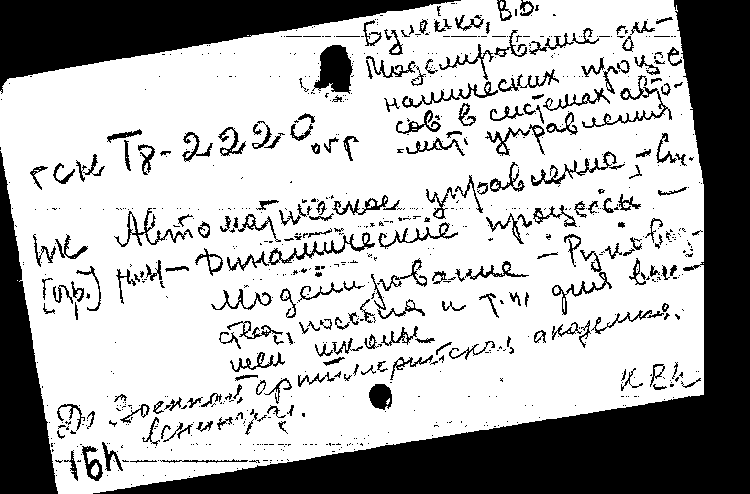 Булейко, В.В.
Моделирование ди-
намических процес
сов в системах авто-
мат. управления
гск Т8-2220 огр
пк Автоматическое управление, - Си.
[огр.] - Динамические процессы -
Моделирование - Руковод-
ства, пособия и т.п. для выс-
шей школы
До Военная артиллерийская академия.
Ленинград.
15h КВh